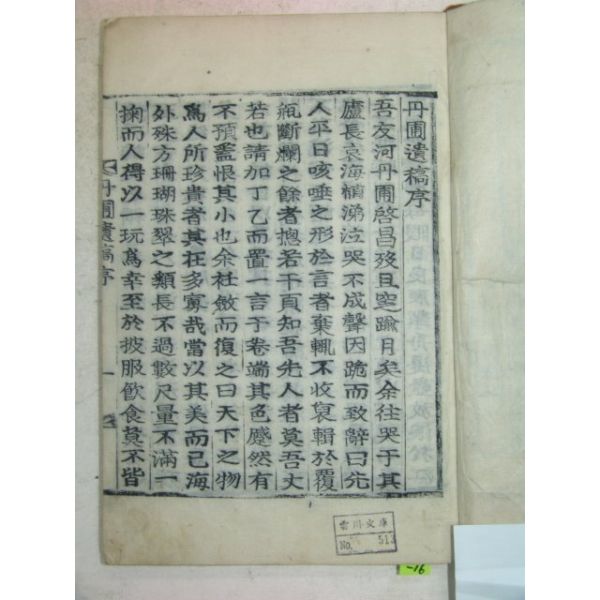 丹圃遺稿序
吾友河丹圃啓昌歿且空踰月矣余往哭于其
廬長哀海楠涕泣哭不成聲因跪而致辭曰先
人平日咳唾之形於言者棄輒不收裒輯於覆
瓿斷爛之餘者摠若干頁知吾先人者莫吾丈
若也請加丁乙而置一言于卷端其色慼然有
不預蓋恨其小也余
斂而復之曰天下之物
爲人所珍貴者其在多寡哉當以其美而已海
外殊方珊瑚珠翠之類長不過數尺量不滿一
掬而人得以一玩爲幸至於被服飮食莫不皆
丹圃遺稿序
一
雲川文庫
No. 513
-16